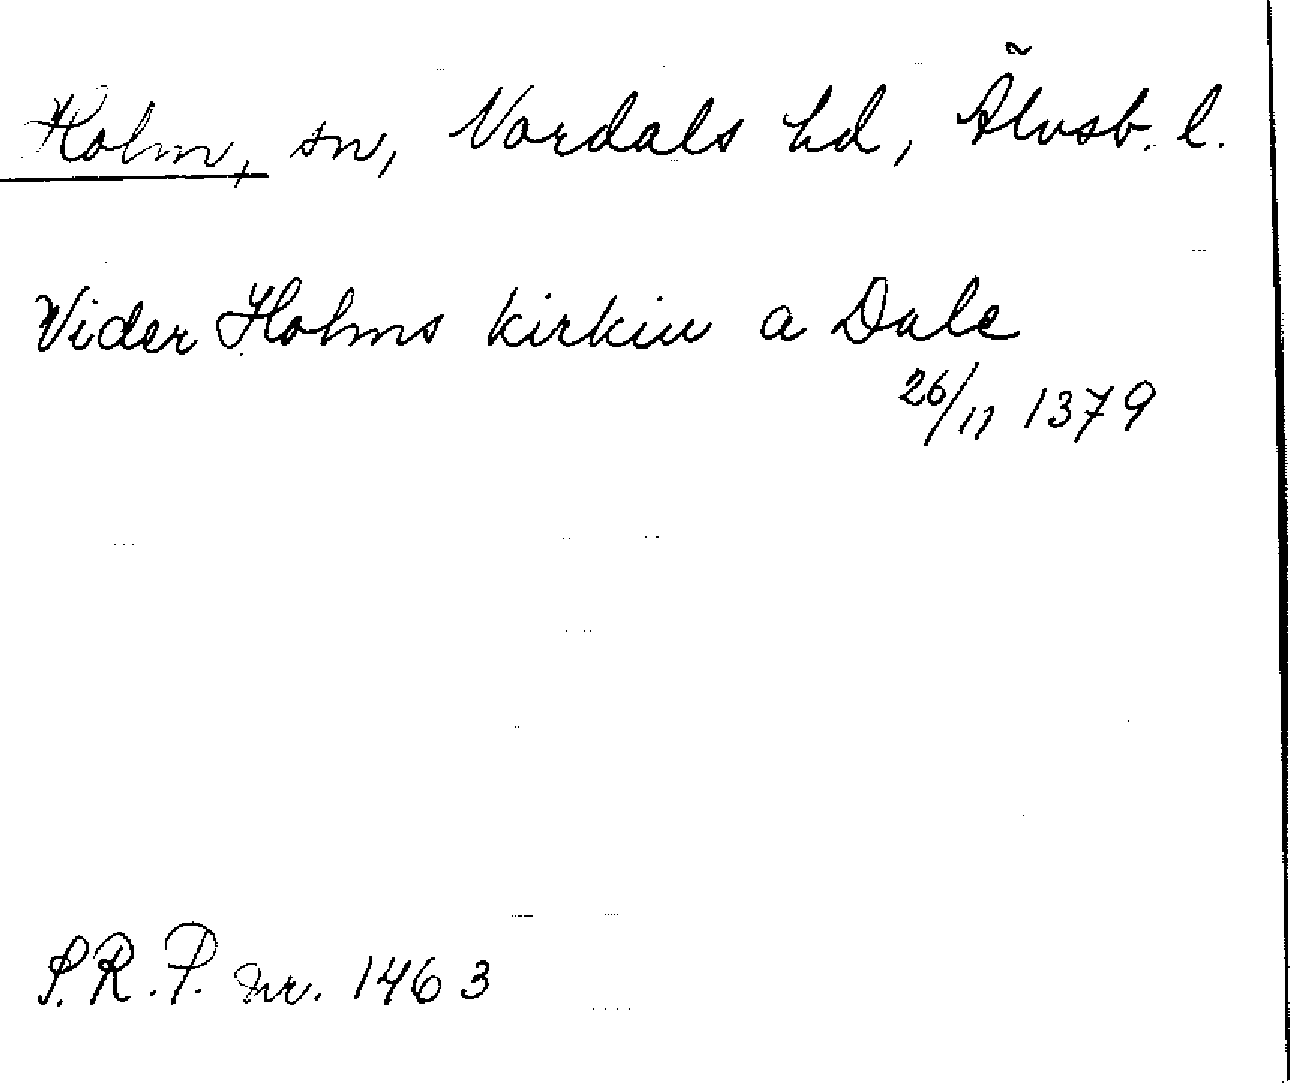 Holm, sn, Nordals hd, Älvsb. l.
Vider Holms kirkiu a Dale
26/11 1379
S.R.P. nr. 1463